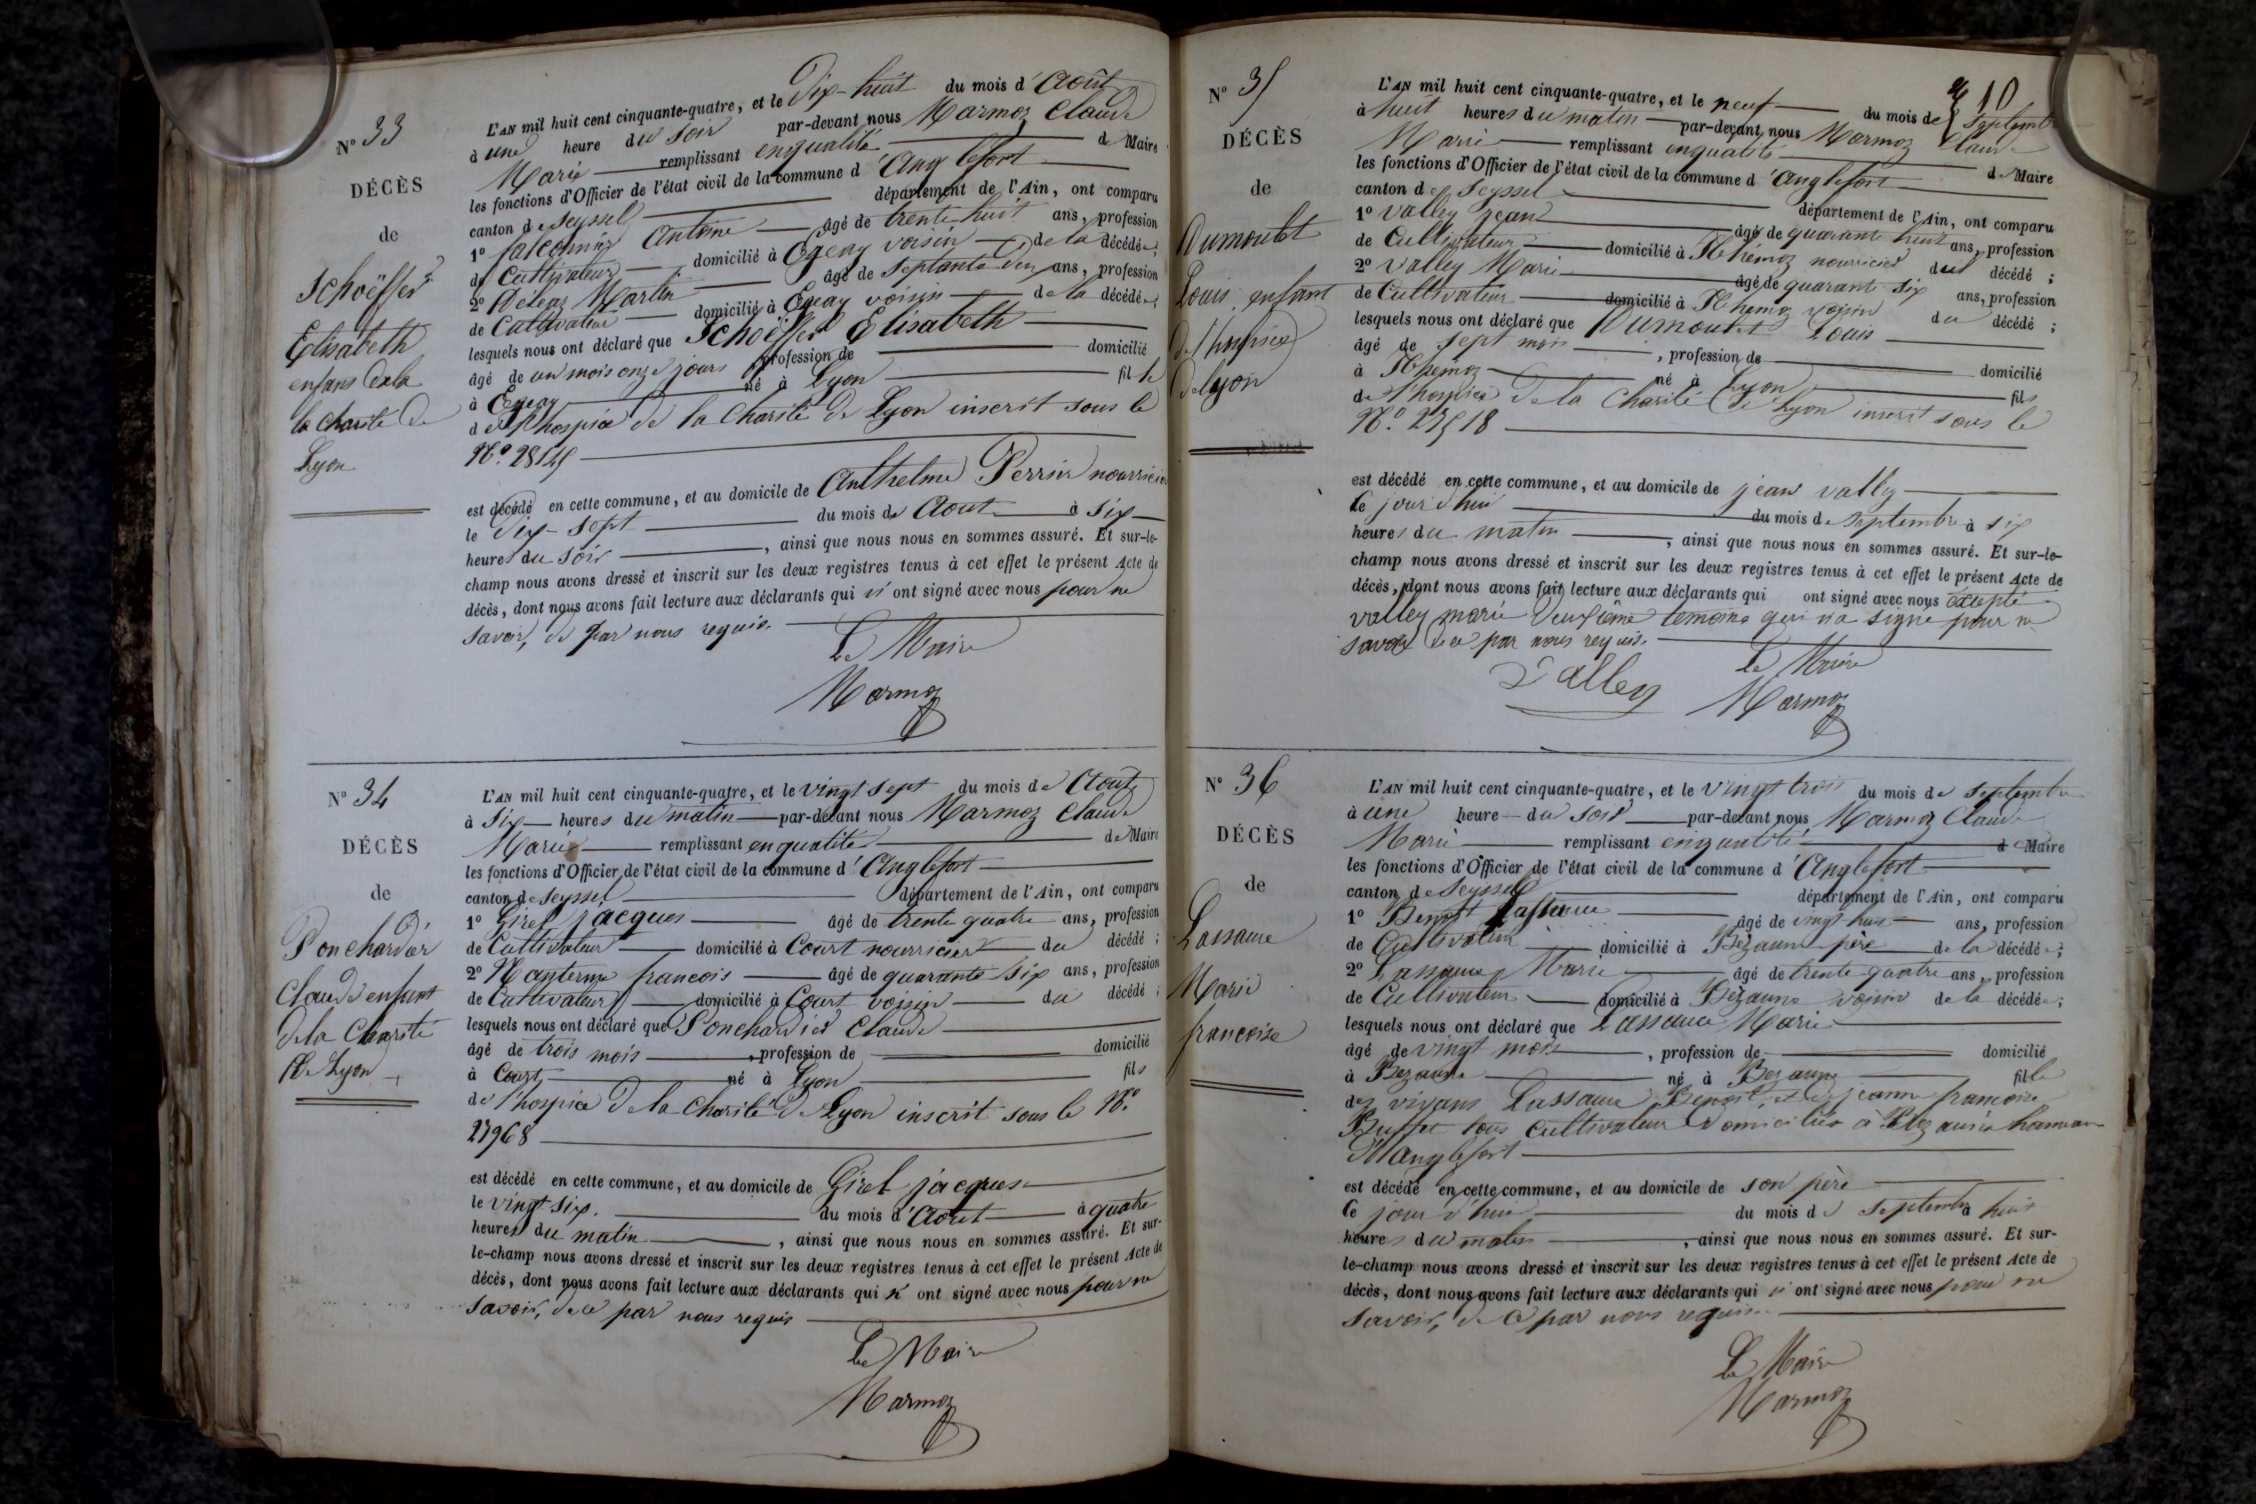 N° 33
DÉCÈS
de
Schoëffer
Elisabeth
enfans de la
la charité de
Lyon
L'AN mil huit cent cinquante-quatre, et le Dix-huit du mois d'Août
à une heure du soir par-devant nous Marmoz Claude
Marie remplissant en qualité de Maire
les fonctions d'Officier de l'état civil de la commune d'Anglefort
canton de Seyssel département de l'Ain, ont comparu
1° falconnier Antoine âgé de trente huit ans, profession
de Cultivateur domicilié à Eyeay voisin de la décédée;
2° Martin âgé de septante deux ans, profession
de Cultivateur domicilié à Eyeay voisin de la décédée;
lesquels nous ont déclaré que Schoëffer Elisabeth
âgé de un mois onze jours profession de domicilié
à Eyeay né à Lyon fille
de l'hospice de la Charité de Lyon inscrit sous le
N°. 28145
est décédé en cette commune, et au domicile de Anthelme Perrin nourricier
le Dix-sept du mois de Aout à six
heures du soir, ainsi que nous nous en sommes assuré. Et sur-le-
champ nous avons dressé et inscrit sur les deux registres tenus à cet effet le présent Acte de
décès, dont nous avons fait lecture aux déclarants qui n'ont signé avec nous pour ne
savoir, de par nous requis.
Le Maire
Marmoz
N° 34
DÉCÈS
de
Ponchardier
Claude enfant
de la Charité
de Lyon
L'AN mil huit cent cinquante-quatre, et le vingt sept du mois de Aout
à six heures du matin par-devant nous Marmoz Claude
Marie remplissant en qualité de Maire
les fonctions d'Officier de l'état civil de la commune d'Anglefort
canton de Seyssel département de l'Ain, ont comparu
1° Girel jacques âgé de trente quatre ans, profession
de Cultivateur domicilié à Court nourricier du décédé;
2° francois âgé de quarante six ans, profession
de Cultivateur domicilié à Court voisin du décédé;
lesquels nous ont déclaré que Ponchardier Claude
âgé de trois mois, profession de domicilié
à Court né à Lyon fils
de l'hospice de la Charité de Lyon inscrit sous le N°.
27968
est décédé en cette commune, et au domicile de Girel jacques
le vingt six. du mois d'Aout à quatre
heures du matin, ainsi que nous nous en sommes assuré. Et sur-
le-champ nous avons dressé et inscrit sur les deux registres tenus à cet effet le présent Acte de
décès, dont nous avons fait lecture aux déclarants qui n'ont signé avec nous pour ne
savoir, de ce par nous requis
Le Maire
Marmoz
10
N° 35
DÉCÈS
de
Dumoulet
Louis enfant
de l'hospice
de Lyon
L'AN mil huit cent cinquante-quatre, et le neuf du mois de septembre
à huit heures du matin par-devant nous Marmoz Claude
Marie remplissant en qualité de Maire
les fonctions d'Officier de l'état civil de la commune d'Anglefort
canton de Seyssel département de l'Ain, ont comparu
1° Valley jean âgé de quarante huit ans, profession
de Cultivateur domicilié à Rhémoz nourricier du décédé;
2° Valley Marie âgé de quarante six ans, profession
de Cultivateur domicilié à Rhemoz voisin du décédé;
lesquels nous ont déclaré que Dumoulet Louis
âgé de sept mois, profession de domicilié
à Rhémoz né à Lyon fils
de l'hospice de la Charité de Lyon inscrit sous le
N°. 27518
est décédé en cette commune, et au domicile de jean valley
le jour d'hui du mois de septembre à six
heures du matin, ainsi que nous nous en sommes assuré. Et sur-le-
champ nous avons dressé et inscrit sur les deux registres tenus à cet effet le présent Acte de
décès, dont nous avons fait lecture aux déclarants qui ont signé avec nous excepté
valley marie deuxième temoins qui n'a signé pour ne
savoir de ce par nous requis.
Valley
Le Maire
Marmoz
N° 36
DÉCÈS
de
Lassauce
Marie
francoise
L'AN mil huit cent cinquante-quatre, et le vingt trois du mois de septembre
à une heure du soir par-devant nous Marmoz Claude
Marie remplissant en qualité de Maire
les fonctions d'Officier de l'état civil de la commune d'Anglefort
canton de Seyssel département de l'Ain, ont comparu
1° Benoit Lassauce âgé de vingt huit ans, profession
de Cultivateur domicilié à Bezaune père de la décédée;
2° Lassauce Marie âgé de trente quatre ans, profession
de Cultivateur domicilié à Bezaune voisin de la décédée;
lesquels nous ont déclaré que Lassauce Marie
âgé de vingt mois, profession de domicilié
à Bezaune né à Bezaune fille
des vivans Lassauce Benoit, et de jeanne francoise
tous cultivateur domiciliés à hameau
d'Anglefort
est décédé en cette commune, et au domicile de son père
le jour d'hui du mois de septembre à huit
heures du matin, ainsi que nous nous en sommes assuré. Et sur-
le-champ nous avons dressé et inscrit sur les deux registres tenus à cet effet le présent Acte de
décès, dont nous avons fait lecture aux déclarants qui n'ont signé avec nous pour ne
savoir, de ce par nous requis
Le Maire
Marmoz